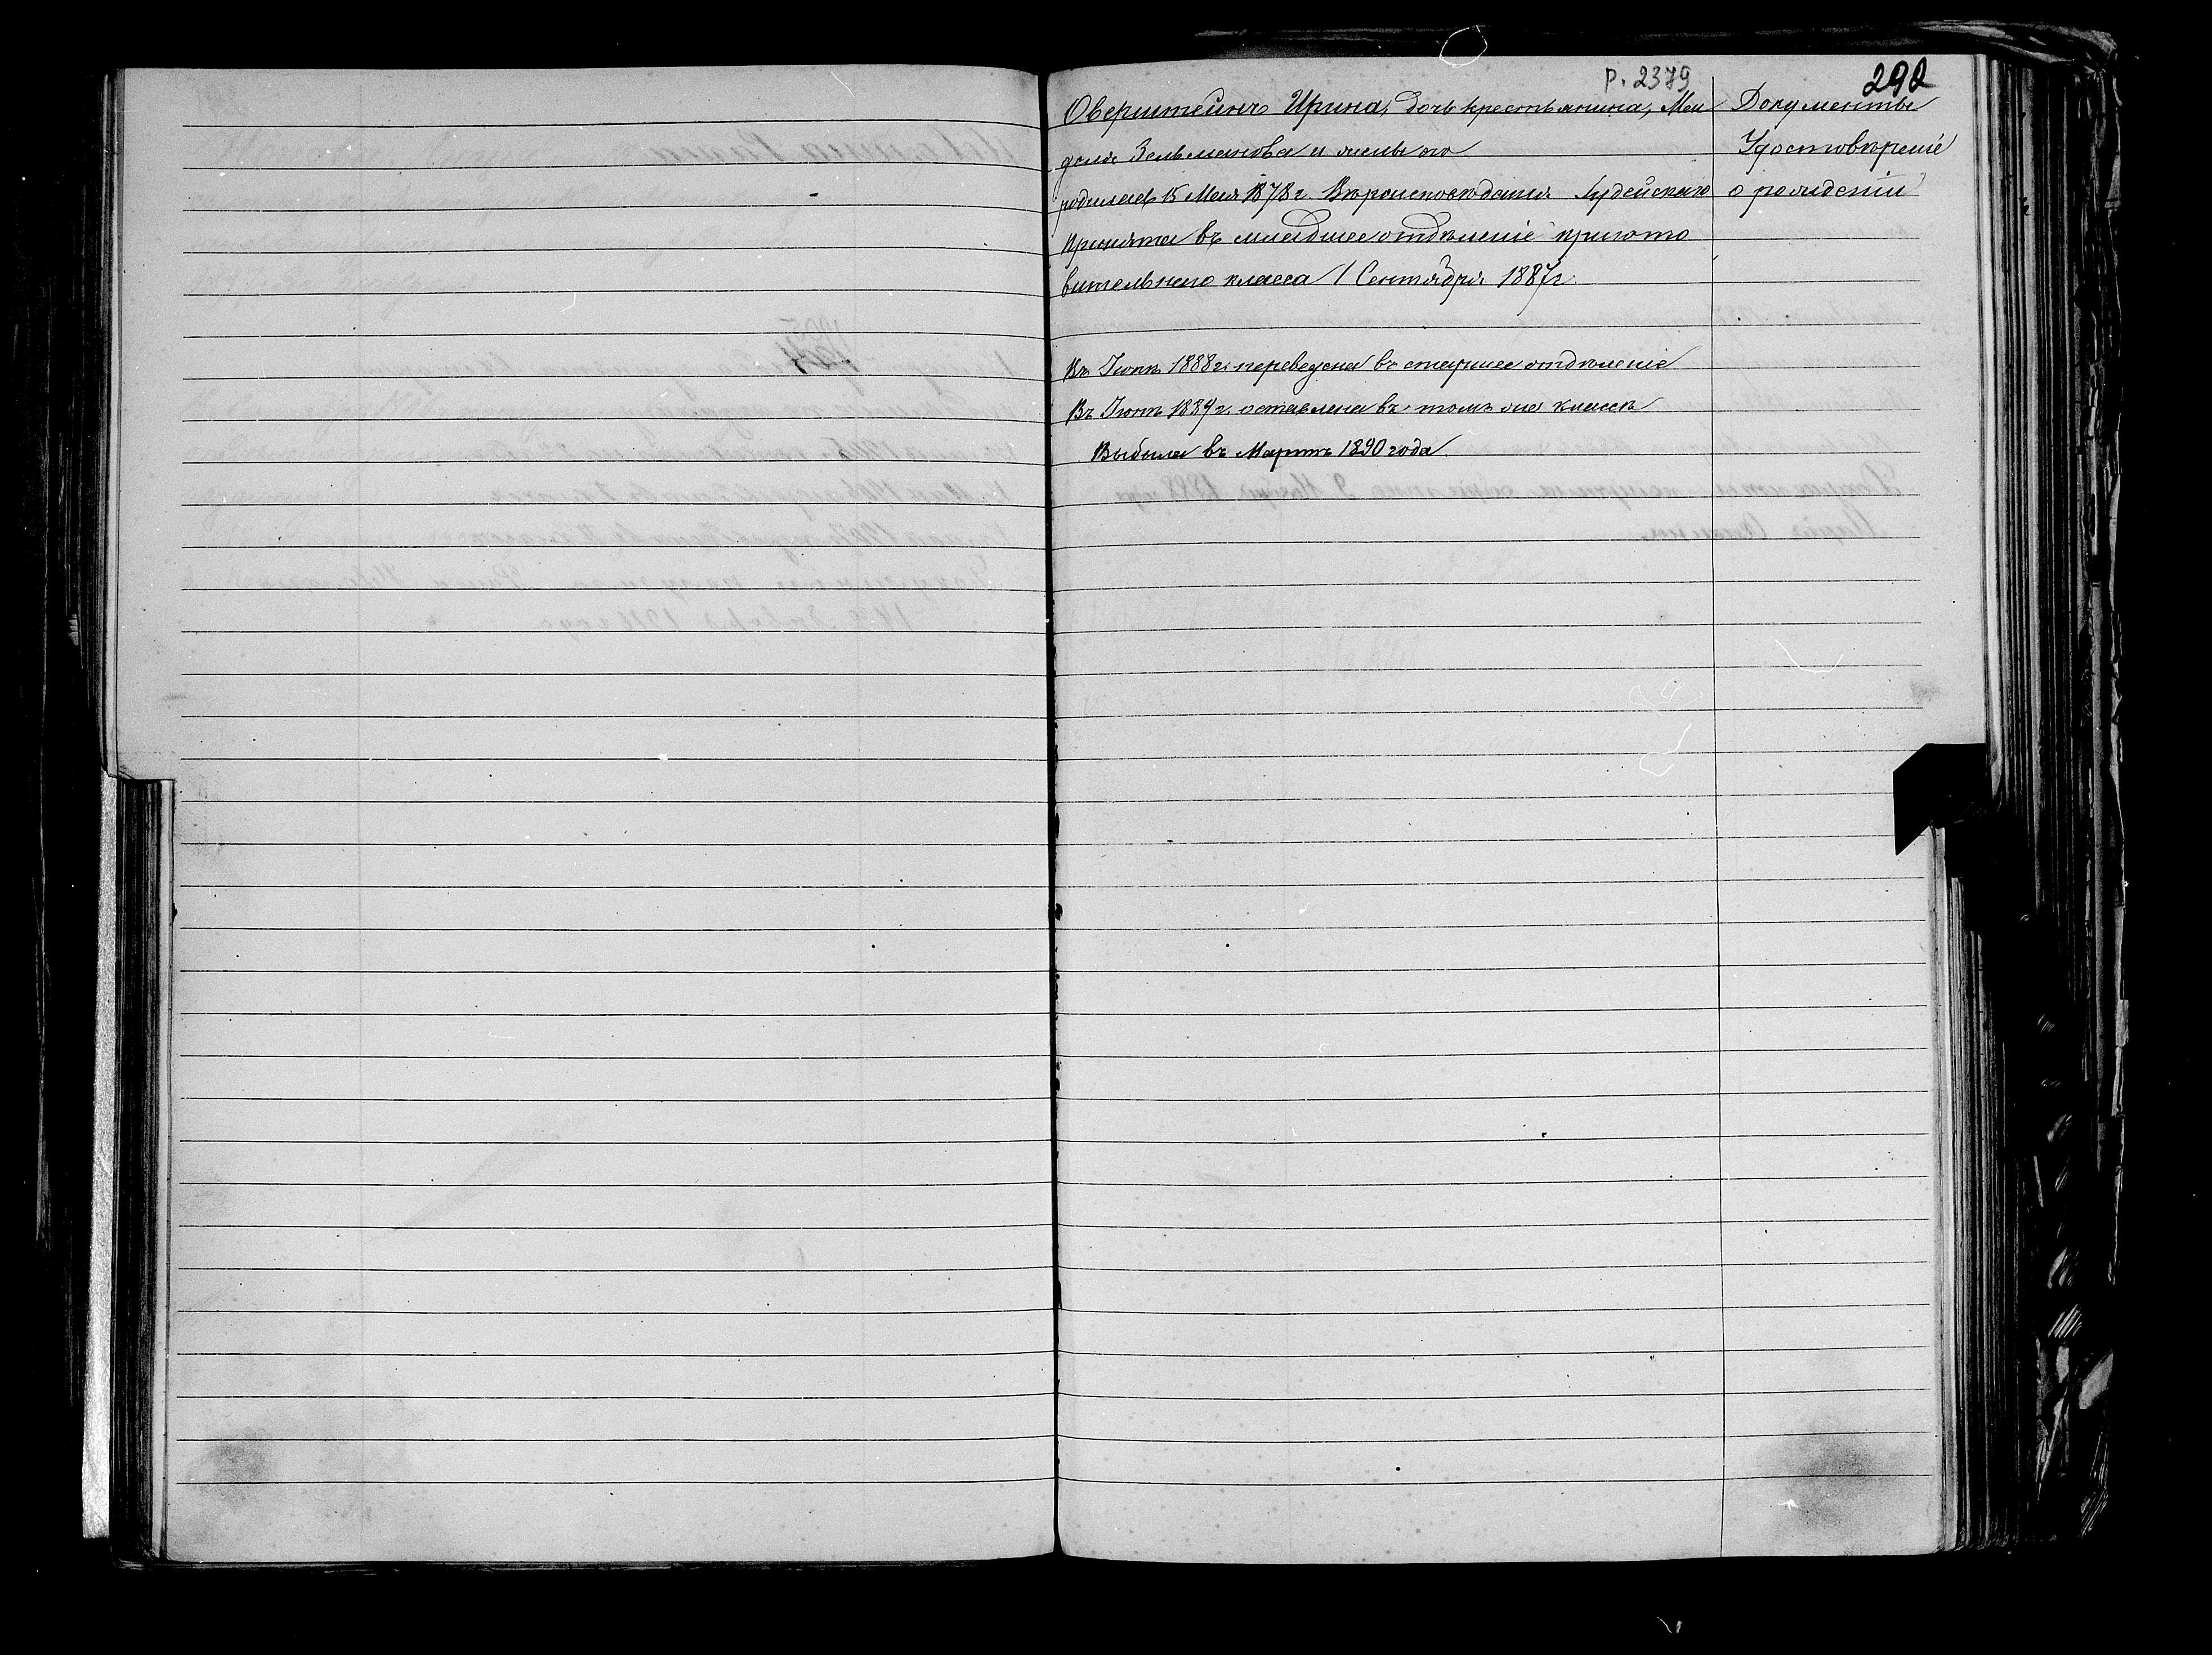 р. 2379
292
Оверштейнъ Ирина, дочь крестьянина, Мен
деля Зельманова и жены его
родилась 15 Мая 1878 г. Вѣроисповѣдания Іудейскаго
Принята въ младшее отдѣленіе пригото
вительнаго класса 1 Сентября 1887 г.
Въ Іюнѣ 1888 г. переведена въ старшее отдѣленіе
Въ Іюнѣ 1889 г. оставлена въ томъ же классѣ
Выбыла въ Мартѣ 1890 года
Документы
Удостовѣреніе
о рожденіи